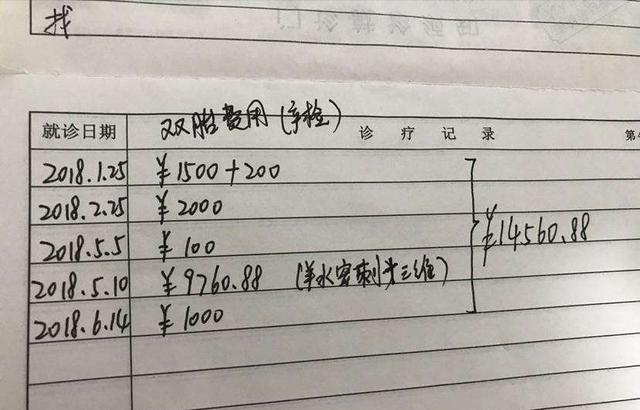 找
就诊日期 双胎费用(孕检) 诊 疗 记 录 第
2018.1.25 ¥1500+200
2018.2.25 ¥2000
2018.5.5 ¥100
2018.5.10 ¥9760.88 (羊水穿刺 三维)
2018.6.14 ¥1000
¥14560.88